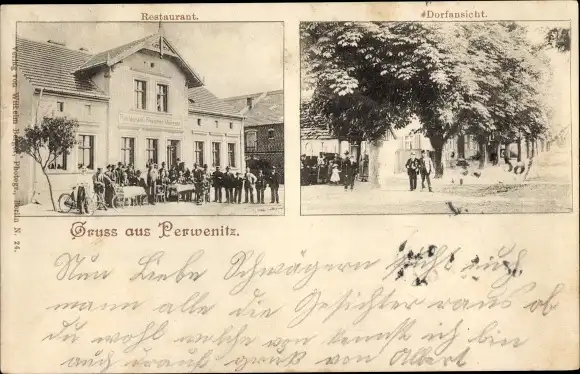 Restaurant.
Dorfansicht.
Verlag von Wilhelm photogr. Berlin N. 24.
Gruss aus Perwenitz.
Nun Liebe Schwägern sucht euch
mann alle die Gesichter raus ob
du wohl welche von kennst ich bin
auch drauf gruß von Albert